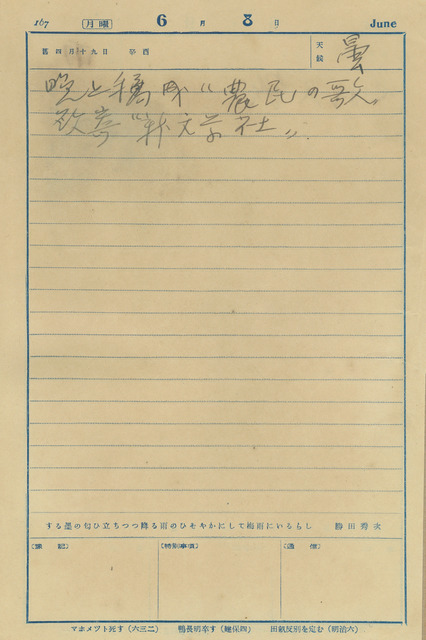 167 月曜 6月8日 June
舊四月十九日 辛酉 天候 曇
晩上稿成“農民の歌”
欲寄“新文学社”.
する墨の匂ひ立ちつつ降る雨のひそやかにして梅雨にいるらし 勝田秀次
〔豫記〕 〔特別事項〕 〔通信〕
マホメット死す(六三二) 鴨長明卒す(建保四) 反別を定む(明治六)